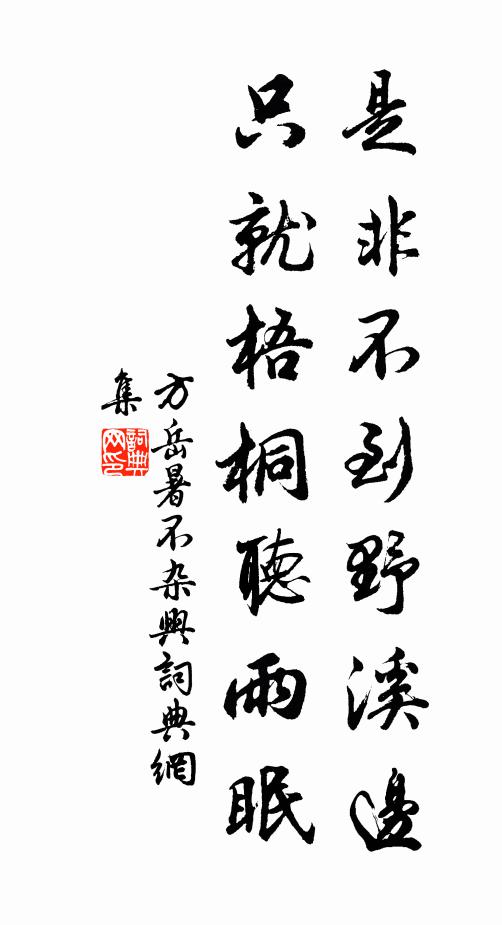 是非不到野溪邊
只就梧桐聽雨眠
方岳暑不杂興詞典網
集
詞典网印